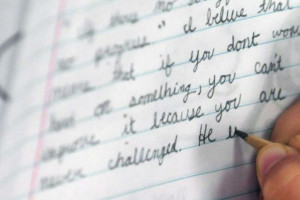 "if there no
no progress" I belive that
means that if you dont work
hard on something, you can't
improve it because you are
never challenged. He